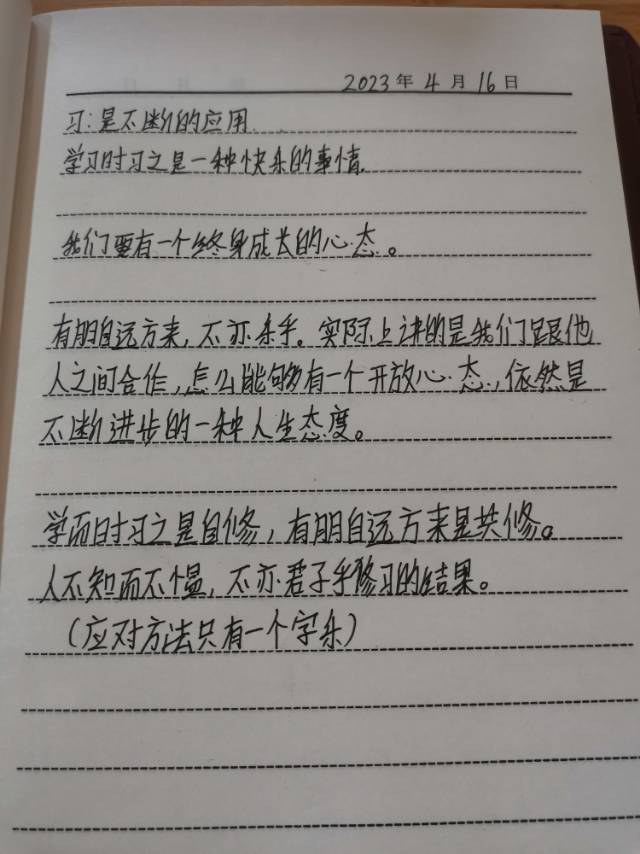 2023年4月16日
习:是不断的应用
学习时习之是一种快乐的事情.
我们要有一个终身成长的心态。
有朋自远方来,不亦乐乎。实际上讲的是我们跟他
人之间合作,怎么能够有一个开放心态,依然是
不断进步的一种人生态度。
学而时习之是自修,有朋自远方来是共修。
人不知而不愠,不亦君子乎修习的结果。
(应对方法只有一个字乐)